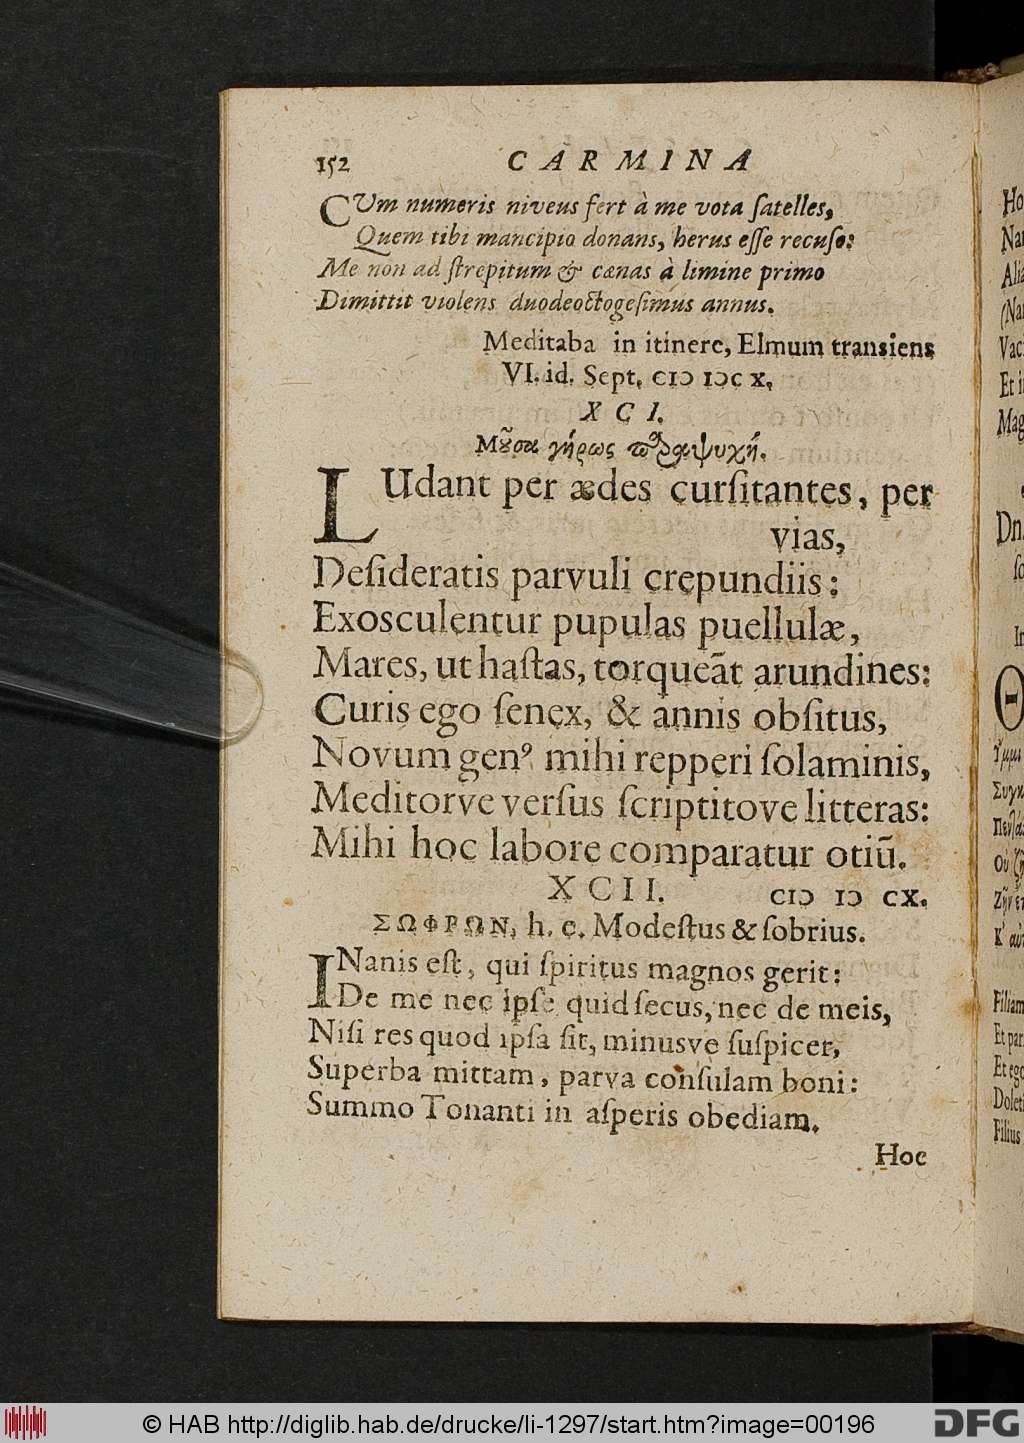 152 CARMINA
CUm numeris niveus fert à me vota ſatelles,
Quem tibi mancipio donans, herus eſſe recuſo:
Me non ad ſtrepitum & cœnas à limine primo
Dimittit violens duodeoctogeſimus annus.
Meditaba in itinere, Elmum transiens
VI. id. Sept. CIƆ IƆC X.
XCI.
Μοῦσα γήρως παραψυχή.
LUdant per ædes curſitantes, per
vias,
Deſideratis parvuli crepundiis:
Exosculentur pupulas puellulæ,
Mares, ut haſtas, torqueãt arundines:
Curis ego ſenex, & annis obſitus,
Novum genꝰ mihi repperi ſolaminis,
Meditorve verſus ſcriptitove litteras:
Mihi hoc labore comparatur otiũ.
XCII. CIƆ IƆ CX.
ΣΩΦΡΩΝ, h. e. Modeſtus & ſobrius.
INanis eſt, qui ſpiritus magnos gerit:
De me nec ipſe quid ſecus, nec de meis,
Niſi res quod ipſa ſit, minusve ſuſpicer,
Superba mittam, parva conſulam boni:
Summo Tonanti in aſperis obediam.
Hoc
Ho
Nar
Alia
(Nar
Vac
Et i
Mag
Dn.
ſo
In
Θ
Συγκ
Οὐ ζ
Filiam
Et par
Et ego
Doleti
Filius
© HAB http://diglib.hab.de/drucke/li-1297/start.htm?image=00196
DFG